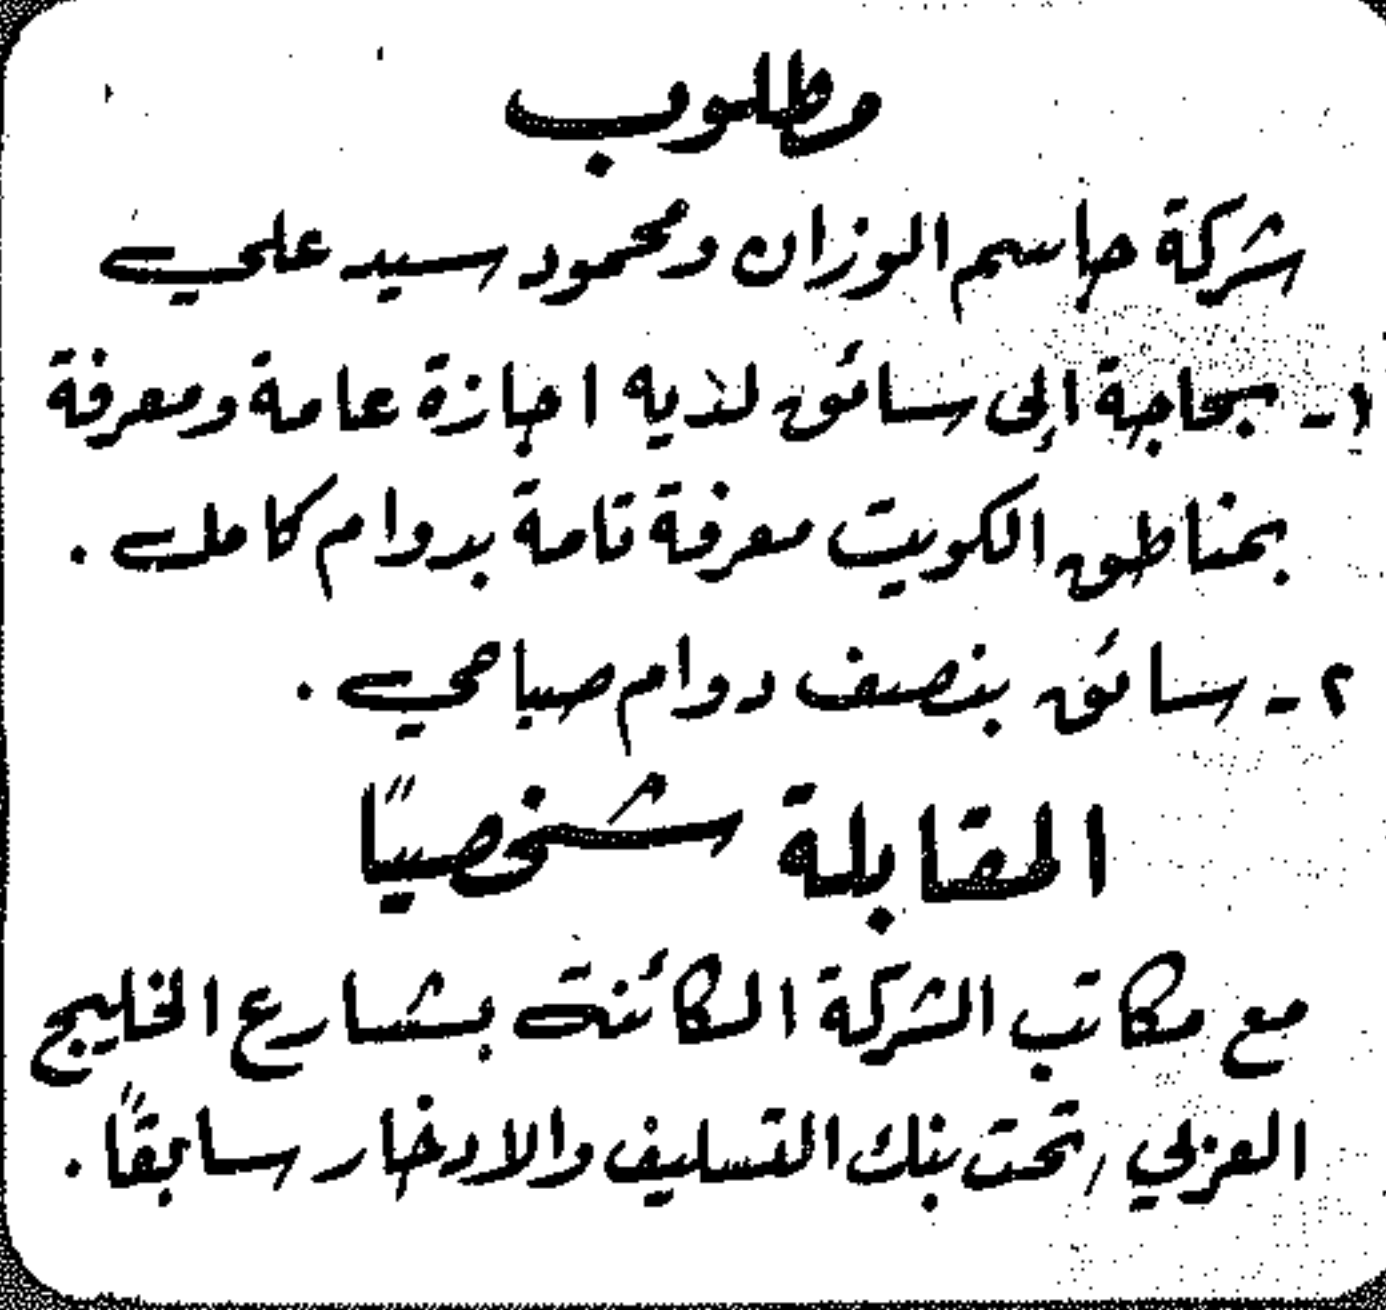 مطلوب
شركة جاسم الوزان ومحمود سيد علي
١- بحاجة إلى سائق لديه اجازة عامة ومعرفة
بمناطق الكويت معرفة تامة بدوام كامل .
٢- سائق بنصف دوام صباحي .
المقابلة شخصيًا
مع مكاتب الشركة الكائنة بشارع الخليج
العربي ، تحت بنك التسليف والادخار سابقًا .